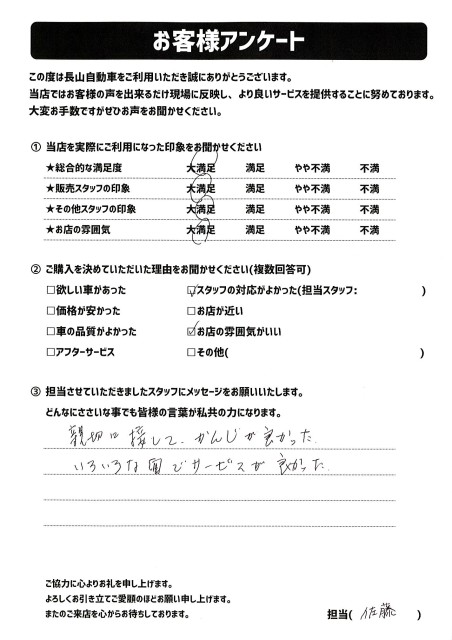 お客様アンケート
この度は長山自動車をご利用いただき誠にありがとうございます。
当店ではお客様の声を出来るだけ現場に反映し、より良いサービスを提供することに努めております。
大変お手数ですがぜひお声をお聞かせください。
① 当店を実際にご利用になった印象をお聞かせください
★総合的な満足度 大満足 満足 やや不満 不満
★販売スタッフの印象 大満足 満足 やや不満 不満
★その他スタッフの印象 大満足 満足 やや不満 不満
★お店の雰囲気 大満足 満足 やや不満 不満
② ご購入を決めていただいた理由をお聞かせください(複数回答可)
□欲しい車があった ☑スタッフの対応がよかった(担当スタッフ: )
□価格が安かった □お店が近い
□車の品質がよかった ☑お店の雰囲気がいい
□アフターサービス □その他( )
③ 担当させていただきましたスタッフにメッセージをお願いいたします。
どんなにささいな事でも皆様の言葉が私共の力になります。
親切に接して、かんじが良かった。
いろいろな面でサービスが良かった
ご協力に心よりお礼を申し上げます。
よろしくお引き立てご愛顧のほどお願い申し上げます。
またのご来店を心からお待ちしております。
担当( 佐藤 )